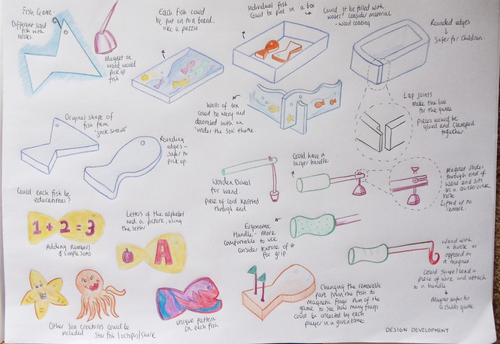 Fish Game
Different sized
fish with
hooks
Magnet on
wand would
pick up
fish
Each fish could
be put in to a board
like a puzzle
Individual fish
could be put in a box
Could it be filled with
water? consider material
wood coating
Rounded edges
safer for children.
Original shape of
fish from
Rounding
edges -
safer to
pick up
Walls of box
could be wavy and
decorated with an
'under the sea' theme.
Lap joints
make the box
Pieces would be
glued and clamped
together
Wooden Dowel
for wand
piece of cord knotted
through end
Could have a
larger handle
Magnet slides
through end of
wand and sits
Could each fish be
educational?
1+2=3
Adding numbers
simple sums
Letters of the alphabet
and a picture, using
the letter
A
Ergonomic
Handle - more
comfortable to use
consider texture of
for grip
Wand with
a hook as
opposed to
a magnet
Could shape/bend a
piece of wire and attach
to a handle
Magnet safer for
a child's game
Other sea creatures could be
included Starfish/octopus/shark
Unique pattern
on each fish
Changing the removable
part from the fish to
magnetic flags. Aim of the
game to see how many flags
could be collected by each
player in a given time.
DESIGN DEVELOPMENT